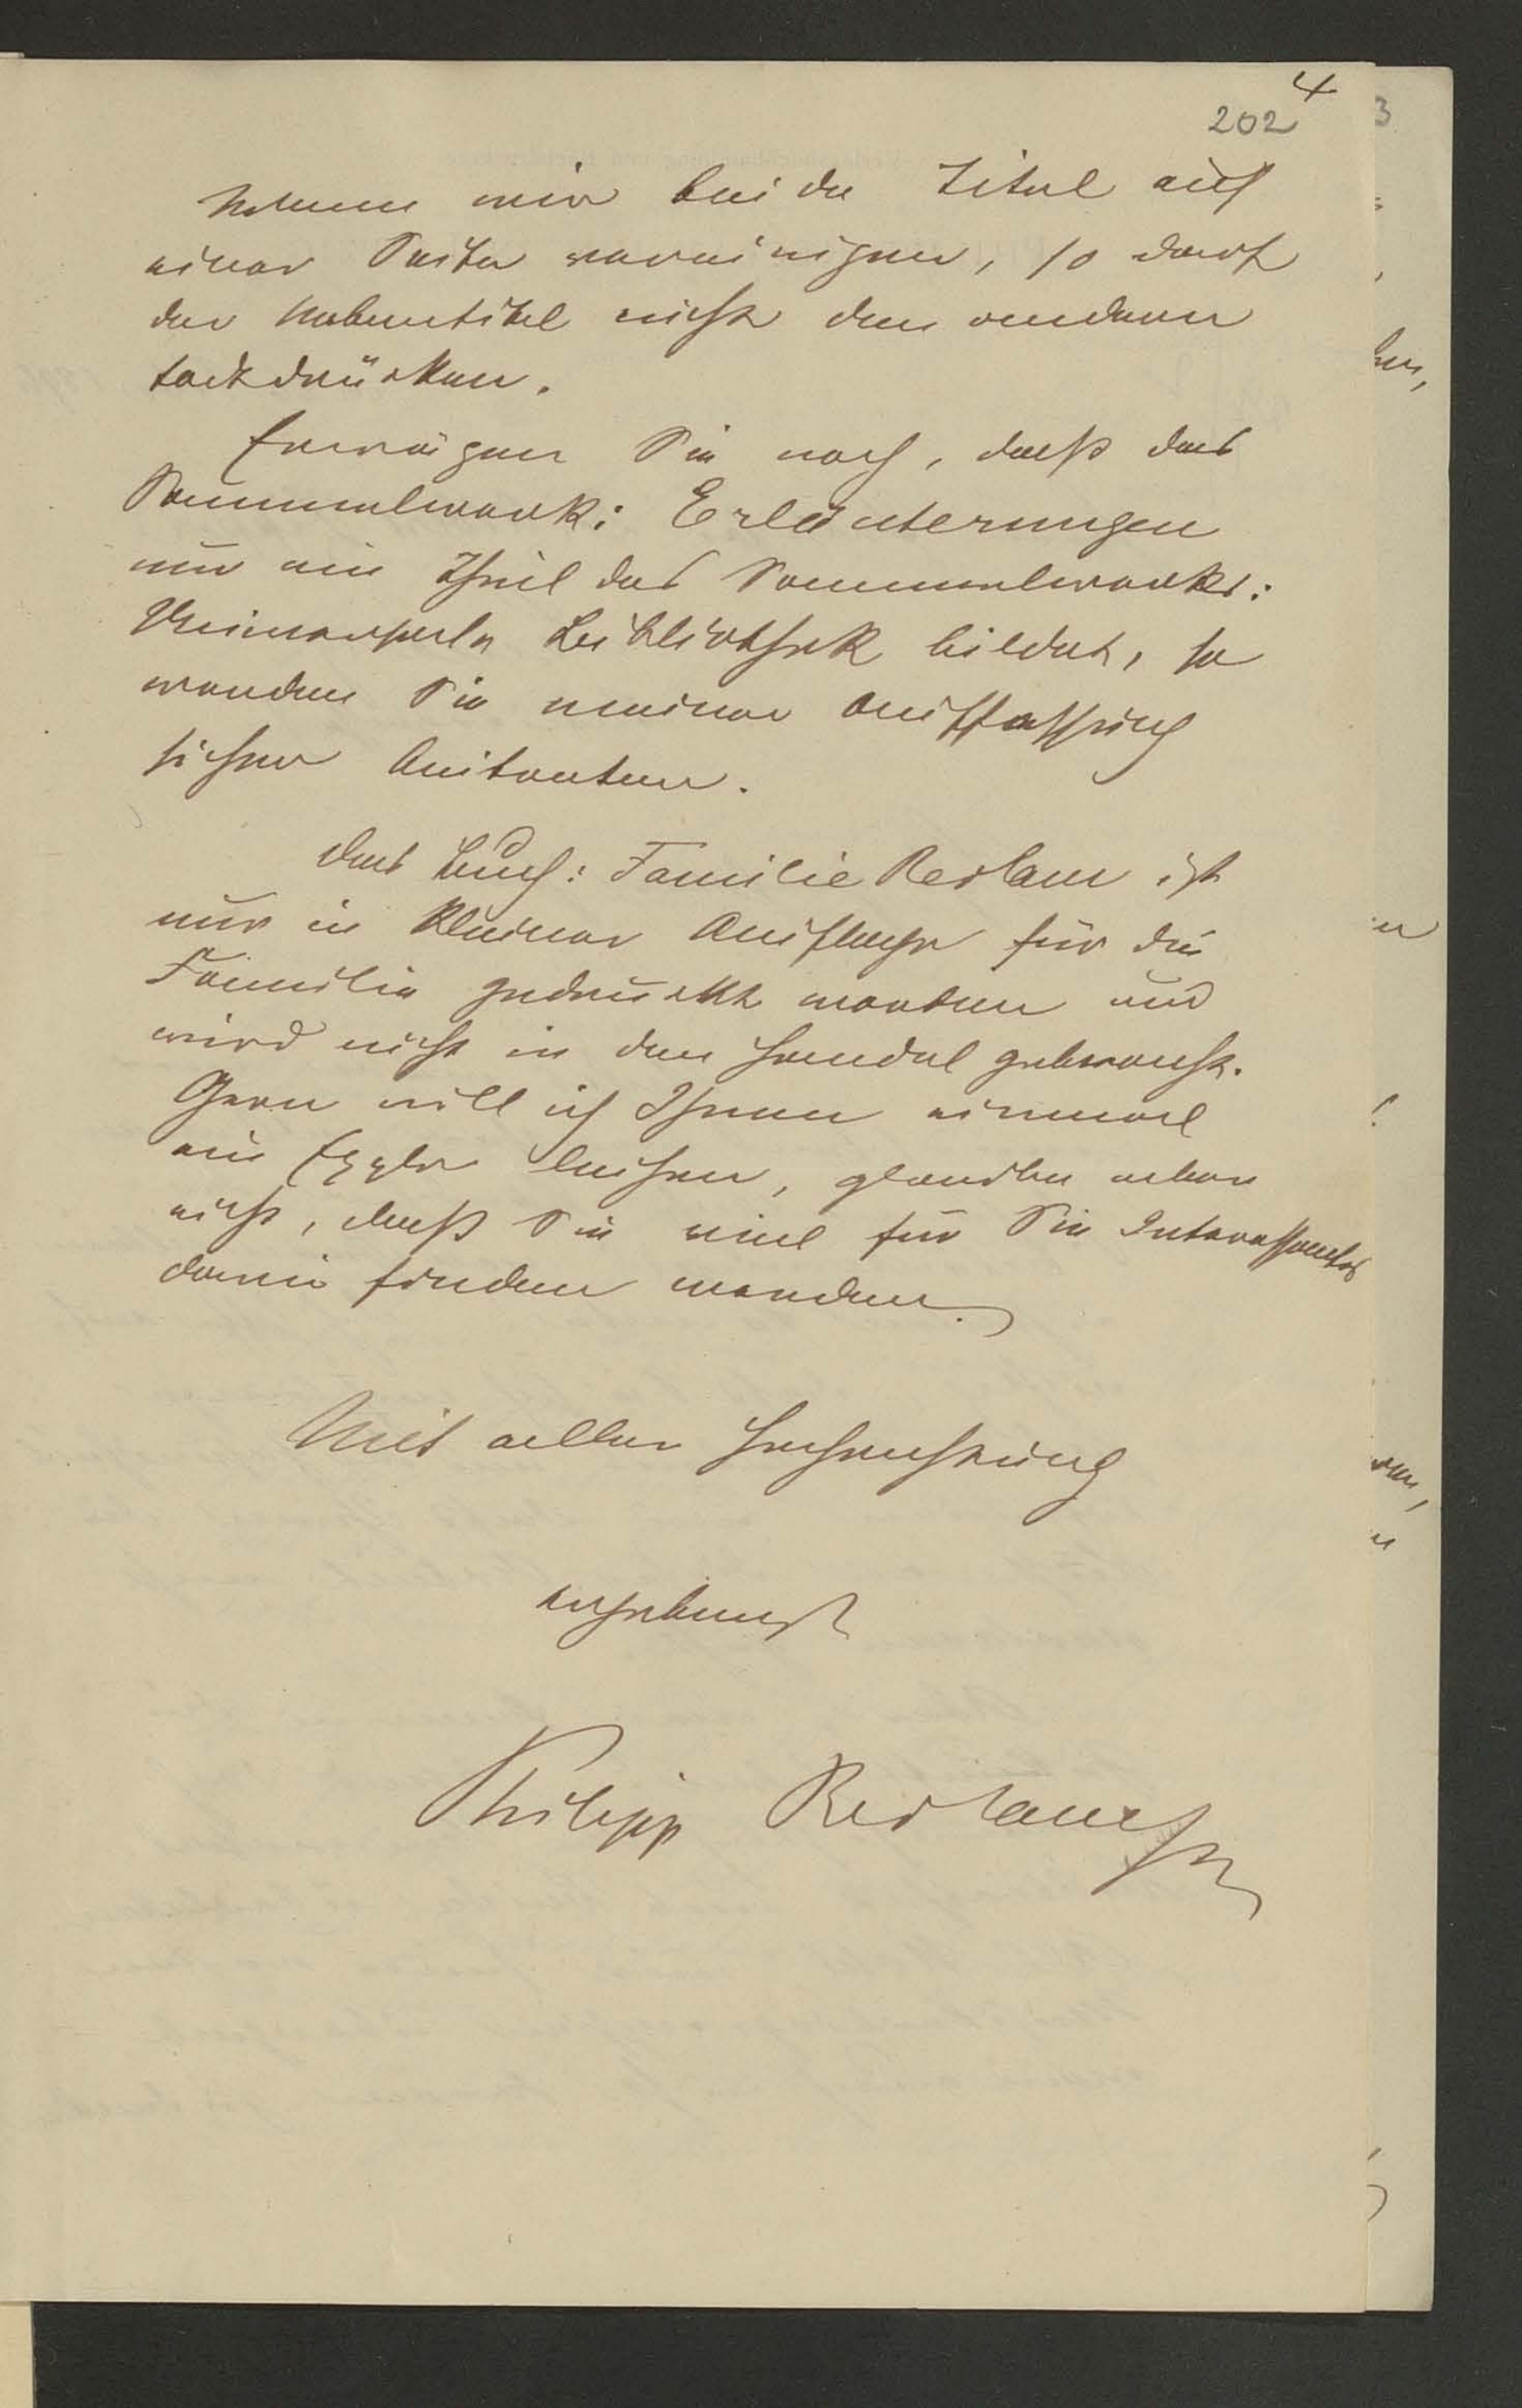 4
202
3
Müssen wir beide Titel auf
einer Seite vereinigen, so darf
der Nebentitel nicht den anderen
todtdrücken.
Erwägen Sie noch, daß das
Sammelwerk: Erläuterungen
nur ein Theil des Sammelwerks:
Universal Bibliothek bildet, so
werden Sie meiner Auffassung
sicher beitreten.
Das Buch: Familie Reclam ist
nur in kleiner Auflage für die
Familie gedruckt worden und
wird nicht in den Handel gebracht.
Gern will ich Ihnen einmal
ein Explr leihen, glaube aber
nicht, daß Sie viel für Sie Interessantes
darin finden werden.
Mit aller Hochachtung
ergebenst
Philipp Reclam